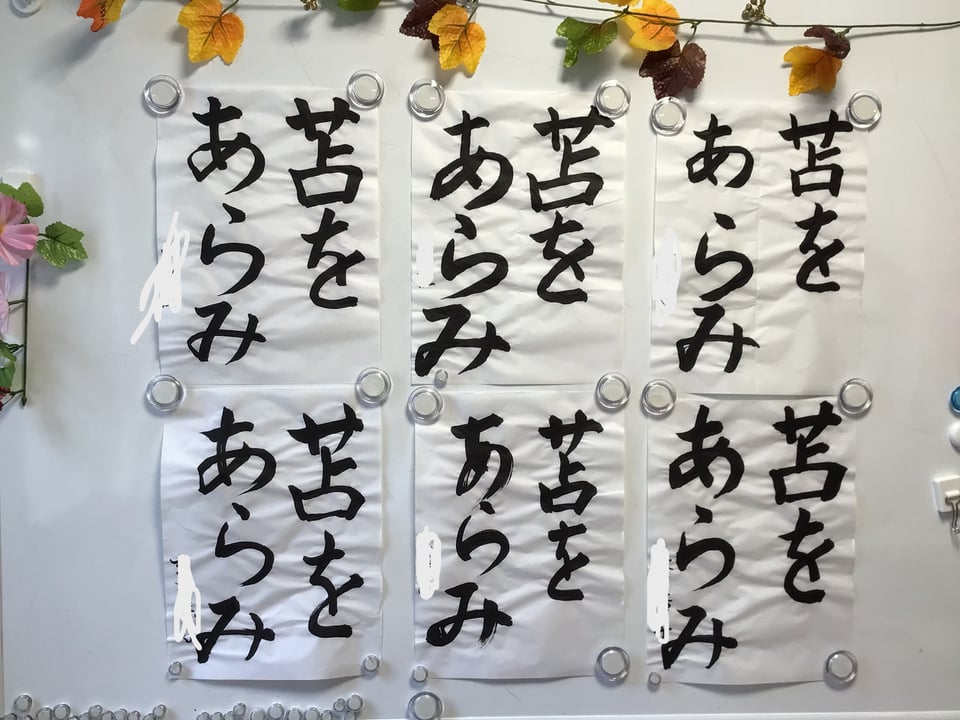 苫を
あらみ
苫を
あらみ
苫を
あらみ
苫を
あらみ
苫を
あらみ
苫を
あらみ